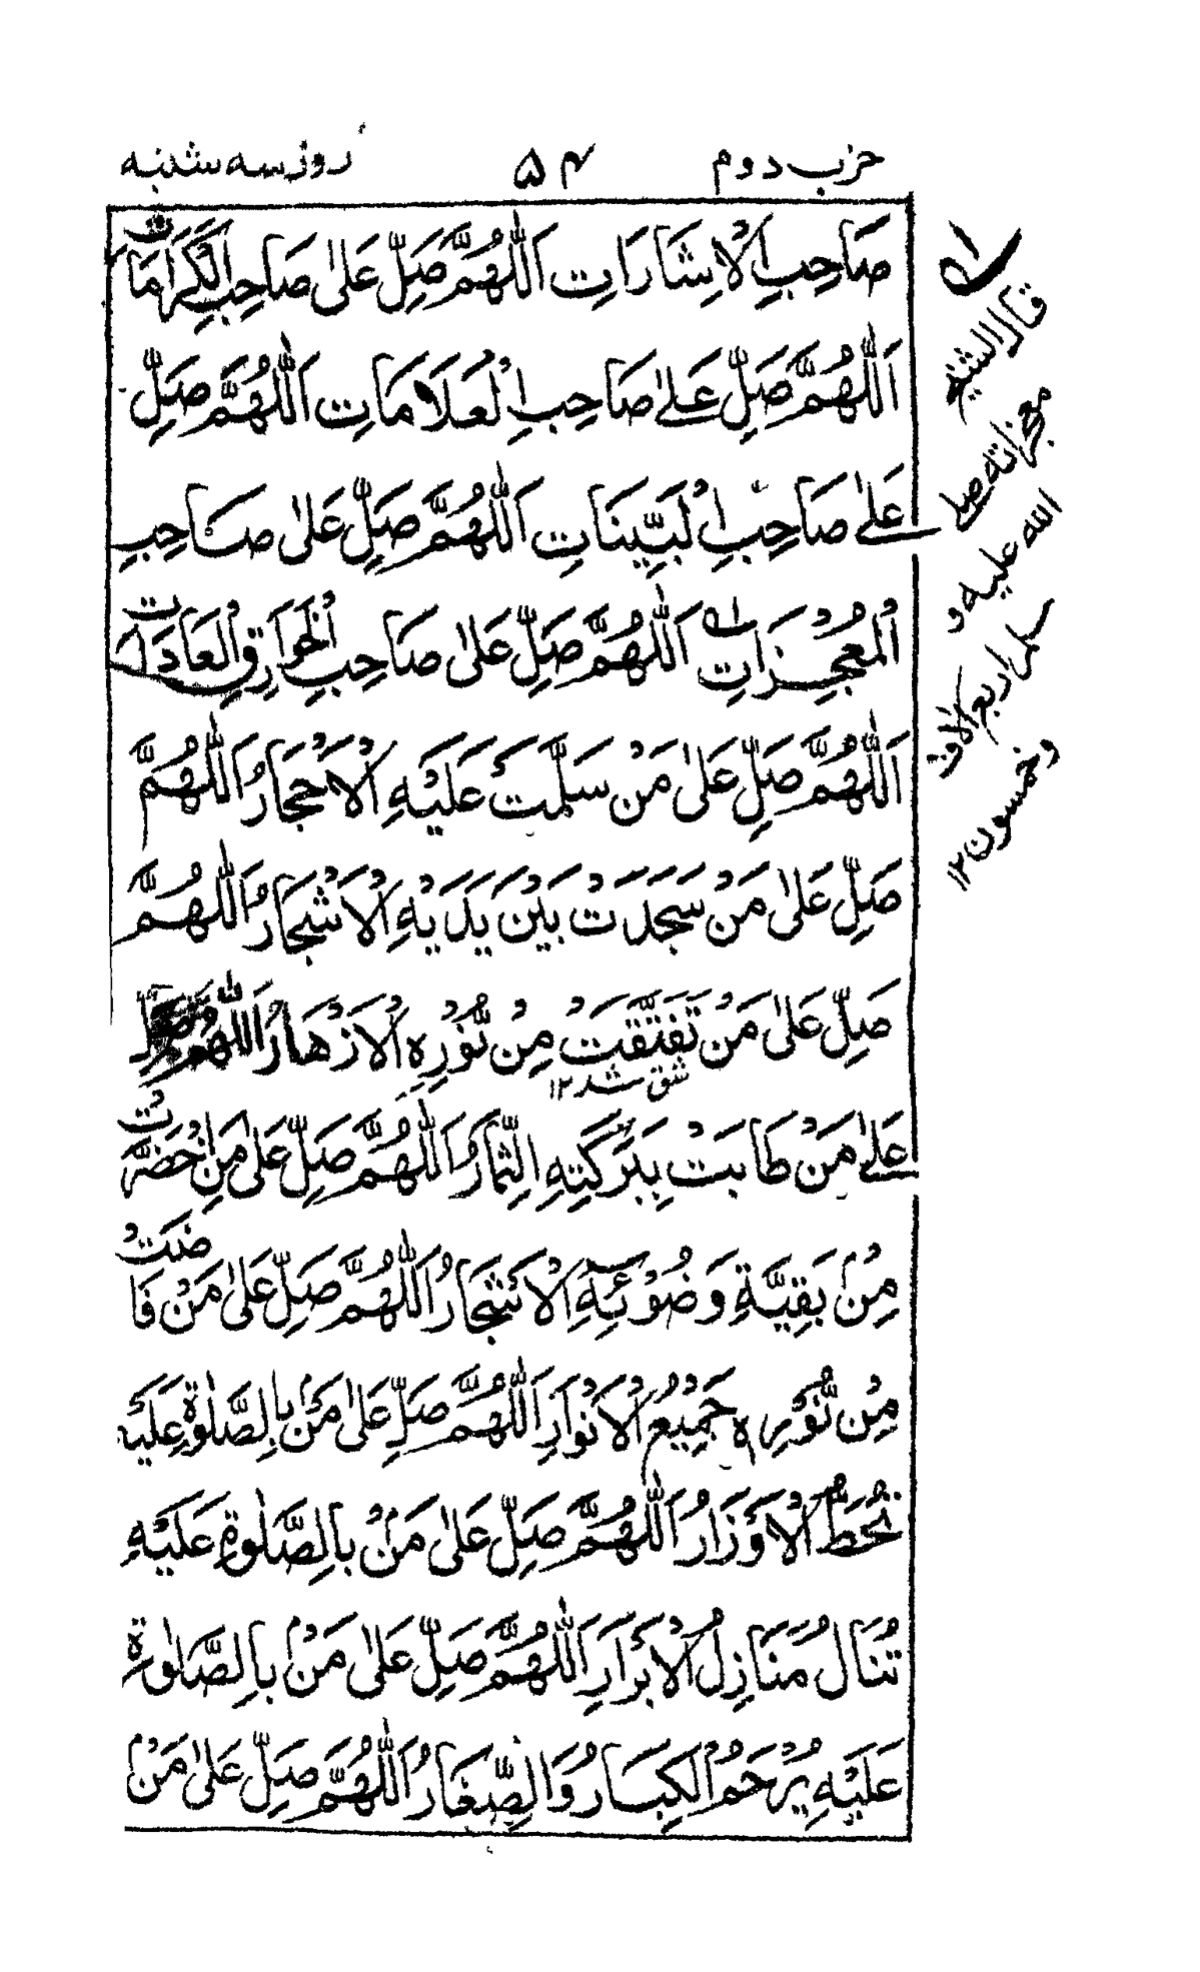 حزب دوم ۵۴ روز سه شنبه
صَاحِبِ الْاِشَارَاتِ اَللّٰهُمَّ صَلِّ عَلٰى صَاحِبِ الْكَرَامَاتِ
اَللّٰهُمَّ صَلِّ عَلٰى صَاحِبِ الْعَلَامَاتِ اَللّٰهُمَّ صَلِّ
عَلٰى صَاحِبِ الْبَيِّنَاتِ اَللّٰهُمَّ صَلِّ عَلٰى صَاحِبِ
الْمُعْجِزَاتِ اَللّٰهُمَّ صَلِّ عَلٰى صَاحِبِ الْخَوَارِقِ الْعَادَاتِ
اَللّٰهُمَّ صَلِّ عَلٰى مَنْ سَلَّمَتْ عَلَيْهِ الْاَحْجَارُ اَللّٰهُمَّ
صَلِّ عَلٰى مَنْ سَجَدَتْ بَيْنَ يَدَيْهِ الْاَشْجَارُ اَللّٰهُمَّ
صَلِّ عَلٰى مَنْ تَفَتَّقَتْ مِنْ نُّوْرِهِ الْاَزْهَارُ اَللّٰهُمَّ صَلِّ
شق شد ۱۲
عَلٰى مَنْ طَابَتْ بِبَرَكَتِهِ الثِّمَارُ اَللّٰهُمَّ صَلِّ عَلٰى مَنِ اخْضَرَّتْ
مِنْ بَقِيَّةِ وَضُوْئِهِ الْاَشْجَارُ اَللّٰهُمَّ صَلِّ عَلٰى مَنْ فَاضَتْ
مِنْ نُّوْرِهٖ جَمِيْعُ الْاَنْوَارِ اَللّٰهُمَّ صَلِّ عَلٰى مَنْ بِالصَّلٰوةِ عَلَيْهِ
تُحَطُّ الْاَوْزَارُ اَللّٰهُمَّ صَلِّ عَلٰى مَنْ بِالصَّلٰوةِ عَلَيْهِ
تُنَالُ مَنَازِلُ الْاَبْرَارِ اَللّٰهُمَّ صَلِّ عَلٰى مَنْ بِالصَّلٰوةِ
عَلَيْهِ يُرْحَمُ الْكِبَارُ وَالصِّغَارُ اَللّٰهُمَّ صَلِّ عَلٰى مَنْ
قال الشيخ
معجزاته صلى
الله عليه و
سلم اربع الاف
وخمسون ۱۲